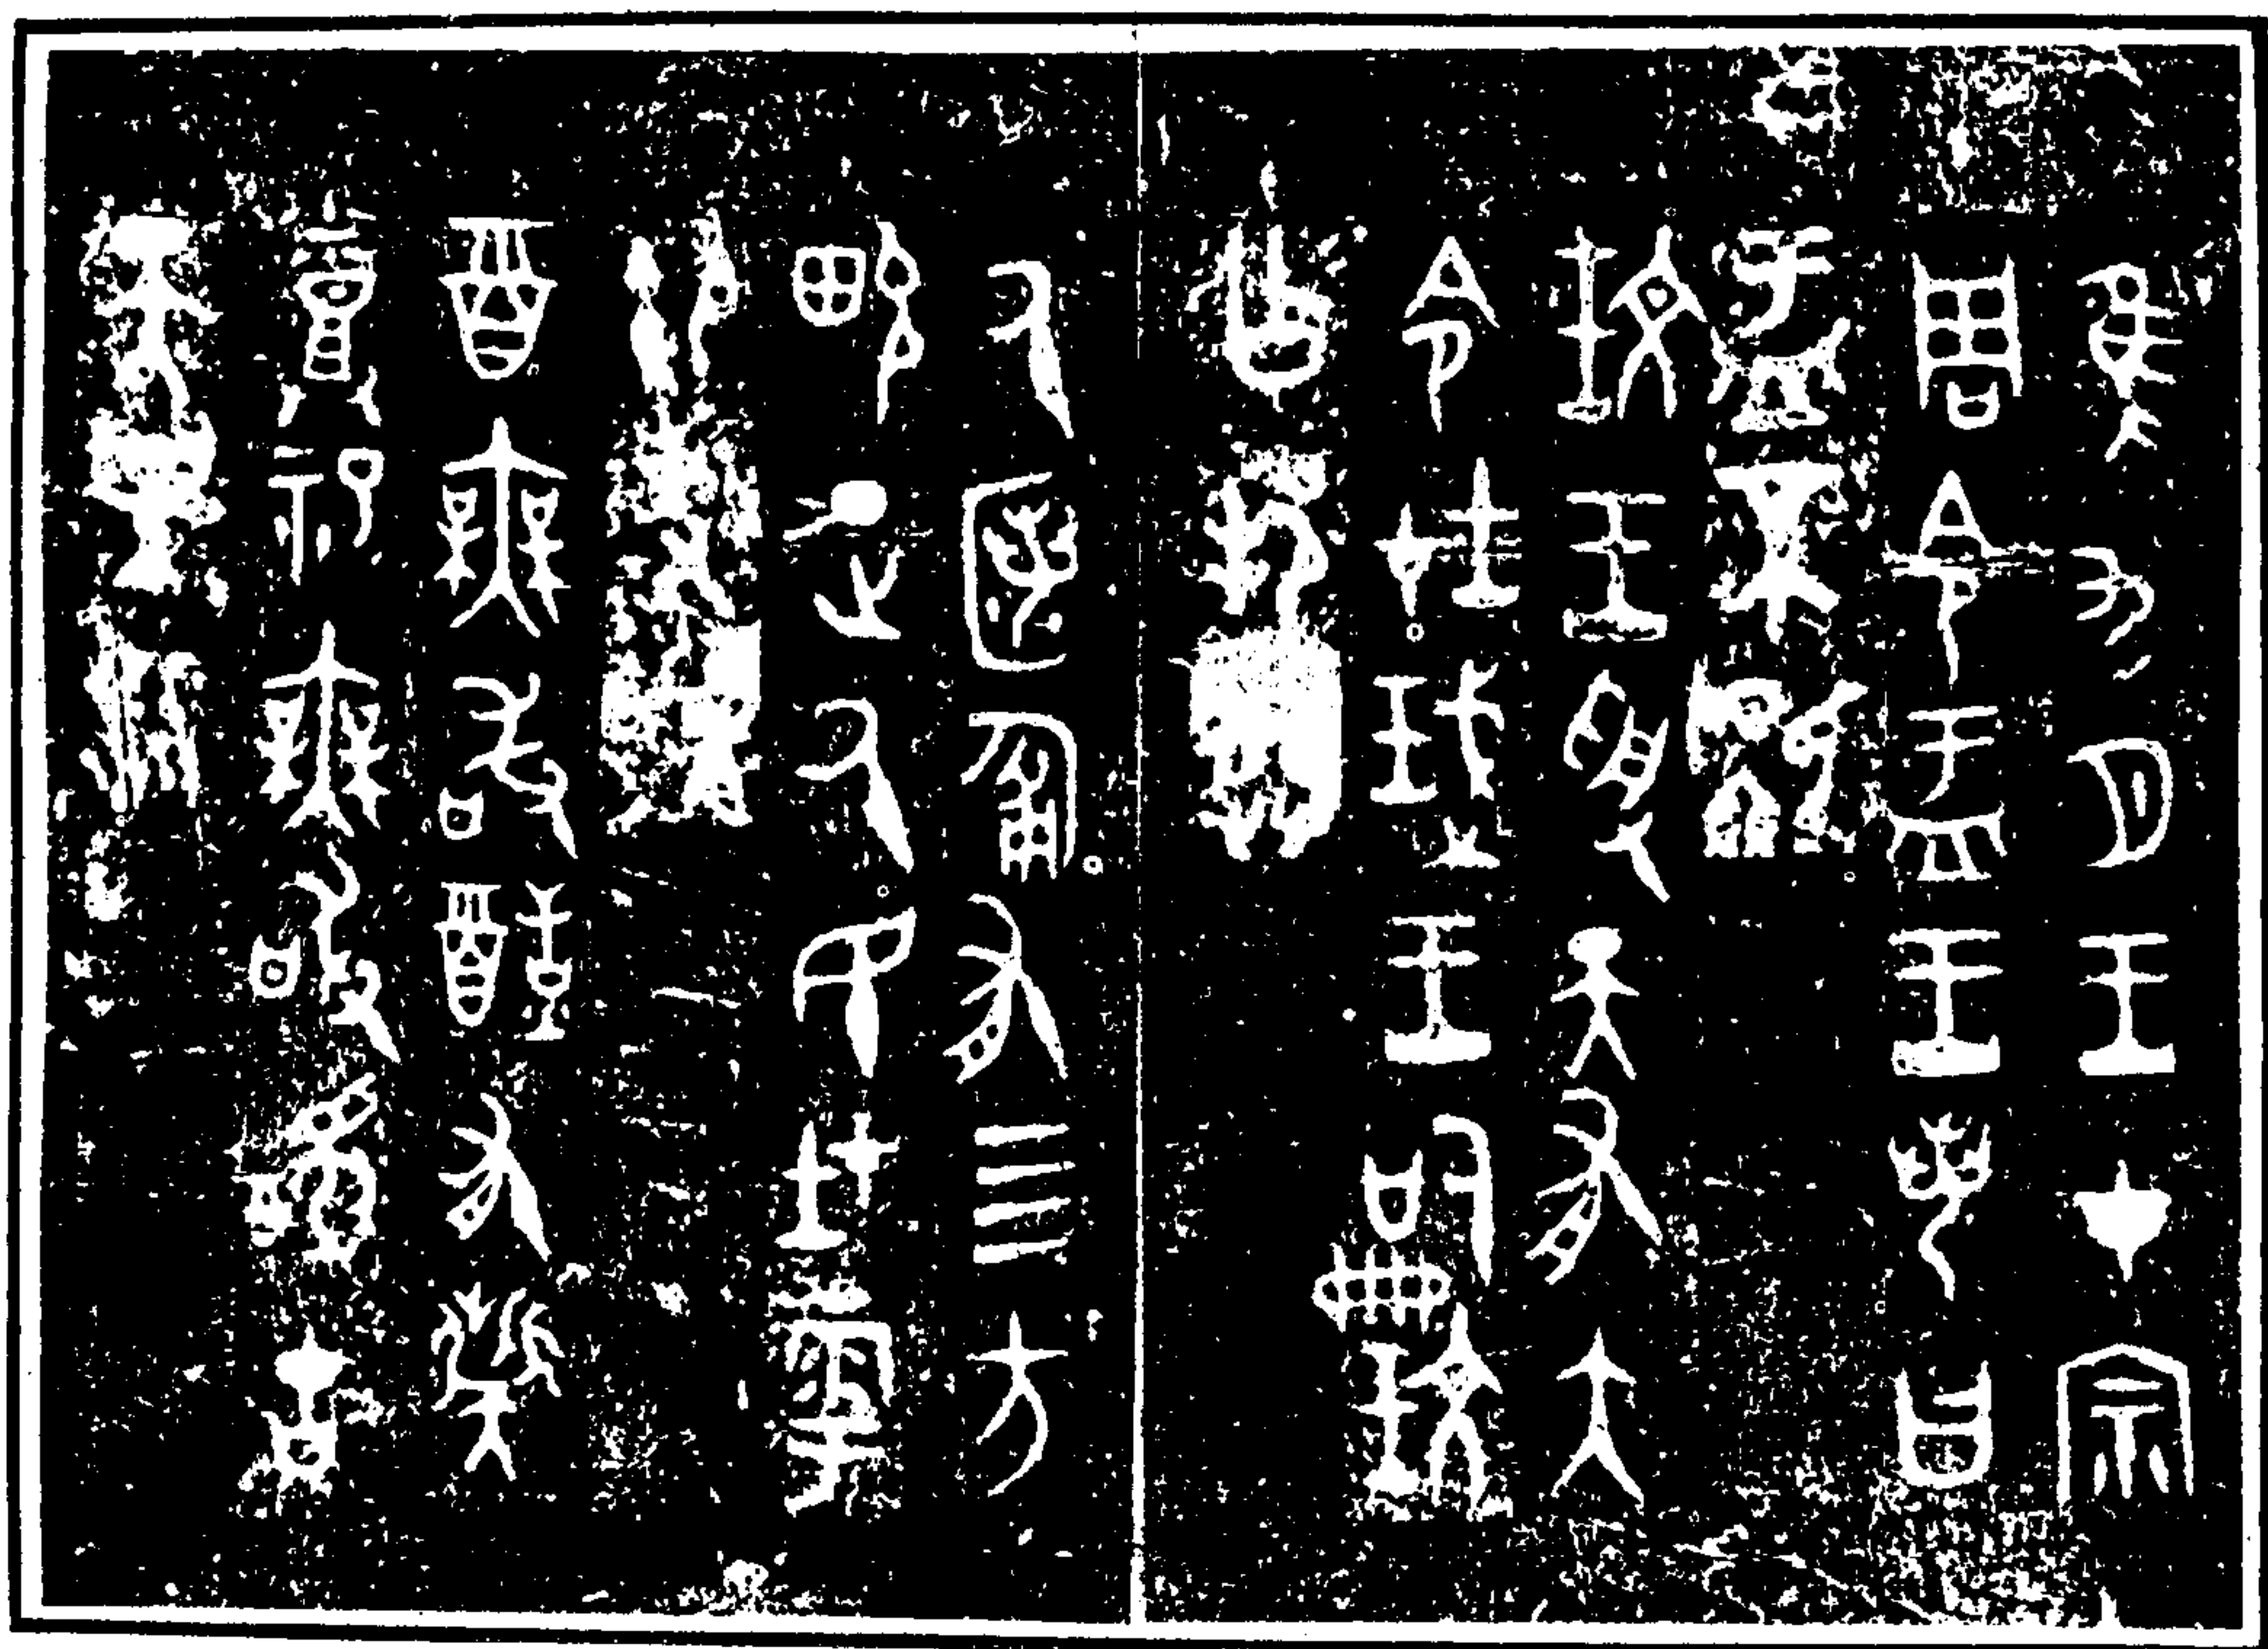 隹九月王才宗
周令盂王若曰
盂不顯
玟王受天有大
令在珷王嗣玟
乍邦闢
厥匿匍有四方
畯正厥民在雩
御事䖒
酉無敢酖有祡
烝祀無敢醻古
天翼臨